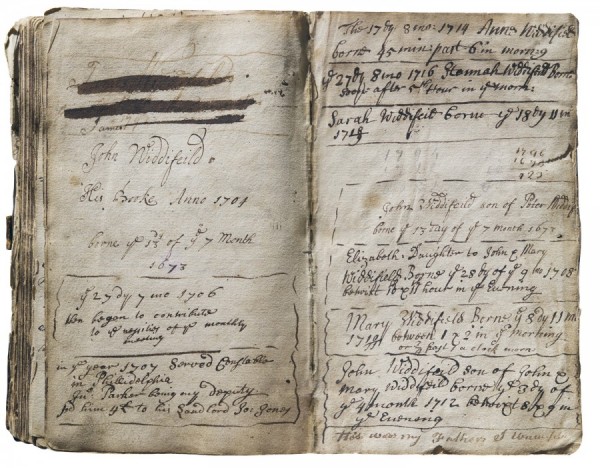 John Widdifeild
His Booke Anno 1704
borne ye 13th of ye 7 Month
1673
ye 27dy 7 mo 1706
then began to contribute
to ye nessities of ye monthly
meeting
in ye year 1707 Served Constable
in Philidelphia
Jno Parker being my deputy
pd him 4£ to his Landlord Jos Jones
The 17dy 8 mo: 1714 Anne Widdifeild
borne 45 min: past 6 in morning
ye 27dy 8 mo 1716 Hannah Widdifeild borne
after 5th Hour in ye morn:
Sarah Widdifeild borne ye 18dy 11 m
1796
1673
123
John Widdifeild son of Peter Widdif
borne ye 13 day of ye 7 month 1673
Elizabeth Daughter to John & Mary
Widdifeild Borne ye 28dy of ye 9 mo 1708
betwixt 10 & 11 hour in ye Evening
Mary Widdifeild Borne ye 8dy 11 m
between 1 & 2 in ye Morning
or ½ past o'clock morn:
John Widdifeild son of John &
Mary Widdifeild borne ye 3dy of
ye 4 month 1712 betwixt 8 & 9 in
ye Evening
was my Fathers